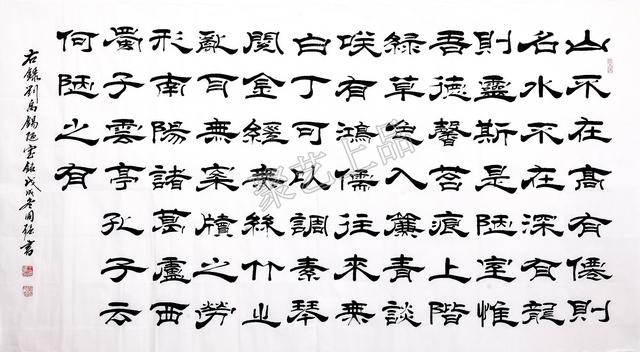 山不在高有僊則
名水不在深有龍
則靈斯是陋室惟
吾德馨苔痕上階
綠草色入簾青談
咲有鴻儒往來無
白丁可以調素琴
閱金經無絲竹之
亂耳無案牘之勞
形南陽諸葛廬西
蜀子雲亭孔子云
何陋之有
右錄劉禹錫陋室銘戊戌冬國強書
聚艺上品